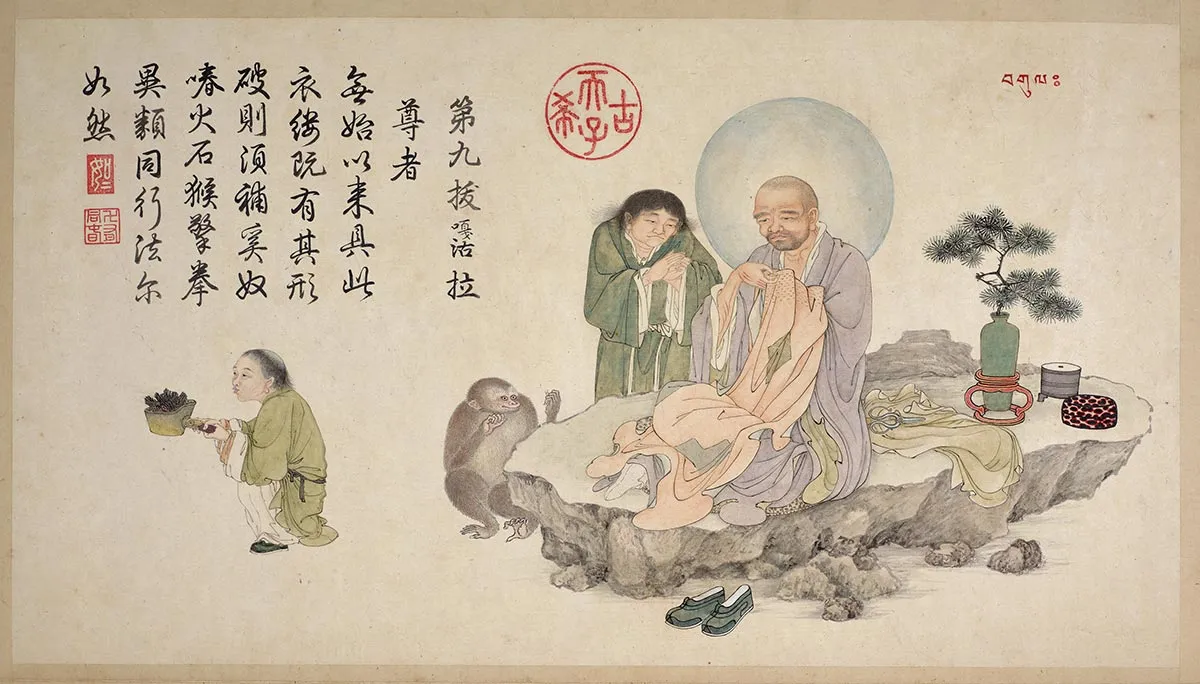 བགུལ༔
古希天子
第九拔嘎沽拉
尊者
無始以來具此
衣縷既有其形
破則須補奚奴
噴火石猴擎拳
異類同行法尔
如然